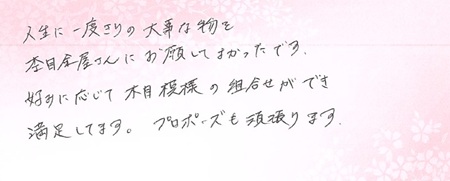 人生に一度きりの大事な物を
杢目金屋さんにお願してよかったです.
好みに応じて木目模様の組合せができ
満足してます。 プロポーズも頑張ります.